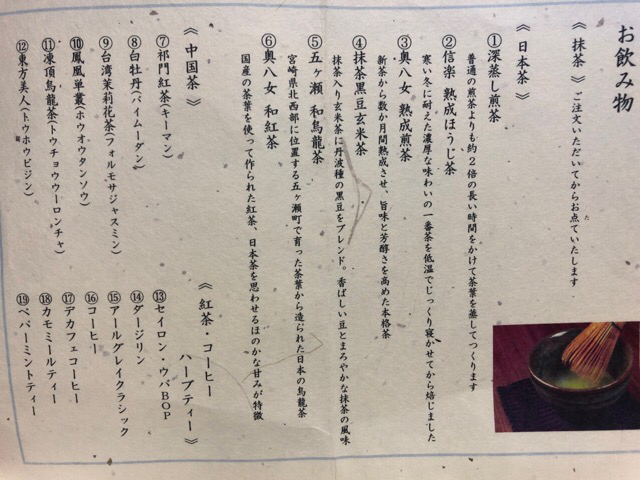 お飲み物
《 抹茶 》ご注文いただいてからお点ていたします
た
《 日本茶 》
①深蒸し煎茶
普通の煎茶よりも約２倍の長い時間をかけて茶葉を蒸してつくります
②信楽 熟成ほうじ茶
寒い冬に耐えた濃厚な味わいの一番茶を低温でじっくり寝かせてから焙じました
③奥八女 熟成煎茶
新茶から数か月間熟成させ、旨味と芳醇さを高めた本格茶
④抹茶黒豆玄米茶
抹茶入り玄米茶に丹波種の黒豆をブレンド。香ばしい豆とまろやかな抹茶の風味
⑤五ヶ瀬 和烏龍茶
宮崎県北西部に位置する五ヶ瀬町で育った茶葉から造られた日本の烏龍茶
⑥奥八女 和紅茶
国産の茶葉を使って作られた紅茶、日本茶を思わせるほのかな甘みが特徴
《 中国茶 》
⑦祁門紅茶(キーマン)
⑧白牡丹(パイムーダン)
⑨台湾茉莉花茶(フォルモサジャスミン)
⑩鳳凰単叢(ホウオウタンソウ)
⑪凍頂烏龍茶(トウチョウウーロンチャ)
⑫東方美人(トウホウビジン)
《 紅茶・コーヒー
ハーブティー 》
⑬セイロン・ウバBOP
⑭ダージリン
⑮アールグレイクラシック
⑯コーヒー
⑰デカフェコーヒー
⑱カモミールティー
⑲ペパーミントティー